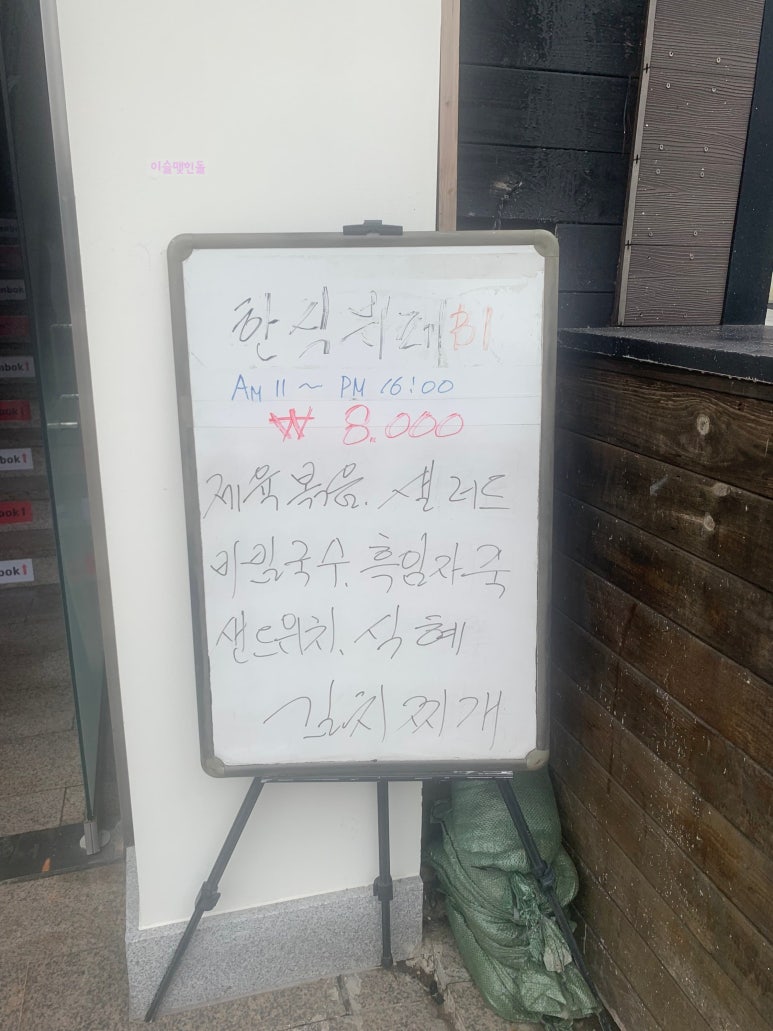 이슬맺인돌
한식뷔페 B1
AM 11 ~ PM 16:00
₩ 8.000
제육볶음. 샐러드
비빔국수. 흑임자죽
샌드위치. 식혜
김치찌개
nbok!
bok!
ook!
bok!